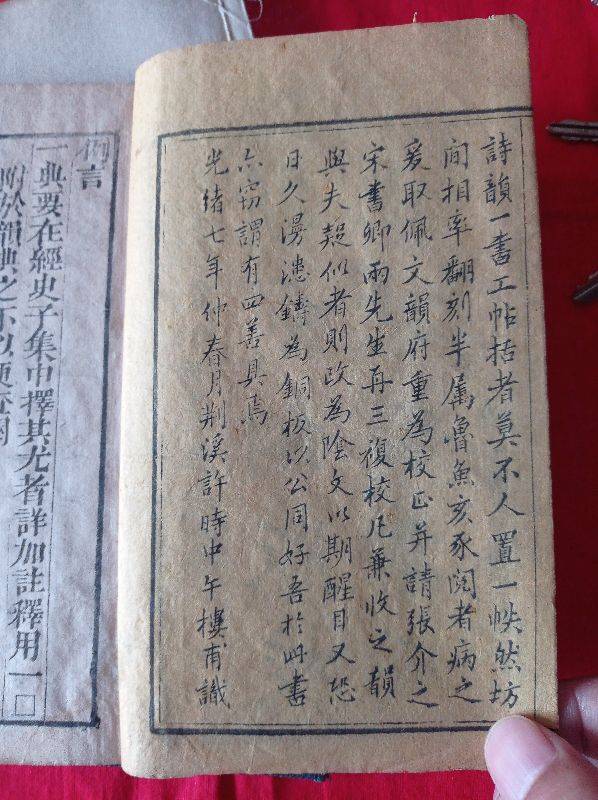 詩韻一書工帖括者莫不人置一帙然坊
間相率翻刻半属魯魚亥豕閱者病之
爰取佩文韻府重為校正并請張介之
宋書卿兩先生再三復校凡兼收之韻
與夫疑似者則改為陰文以期醒目又恐
日久漫漶鑄為銅板以公同好吾於此書
亦窃謂有四善具焉
光緒七年仲春月荆溪許時中午樓甫識
例言
一典要在經史子集中擇其尤者詳加註釋用一□